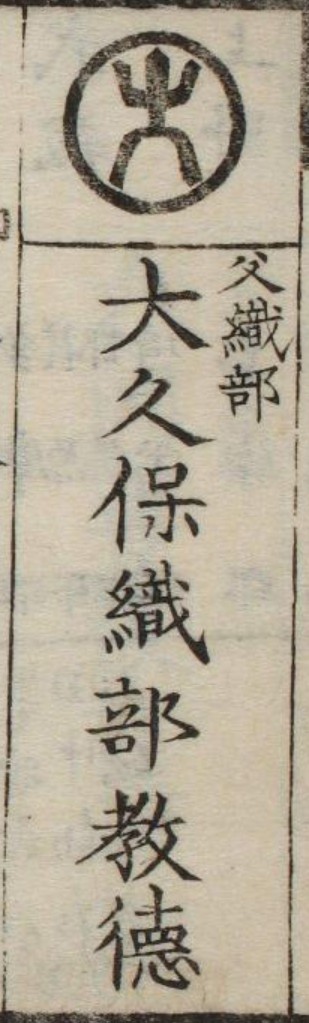 父織部
大久保織部教徳